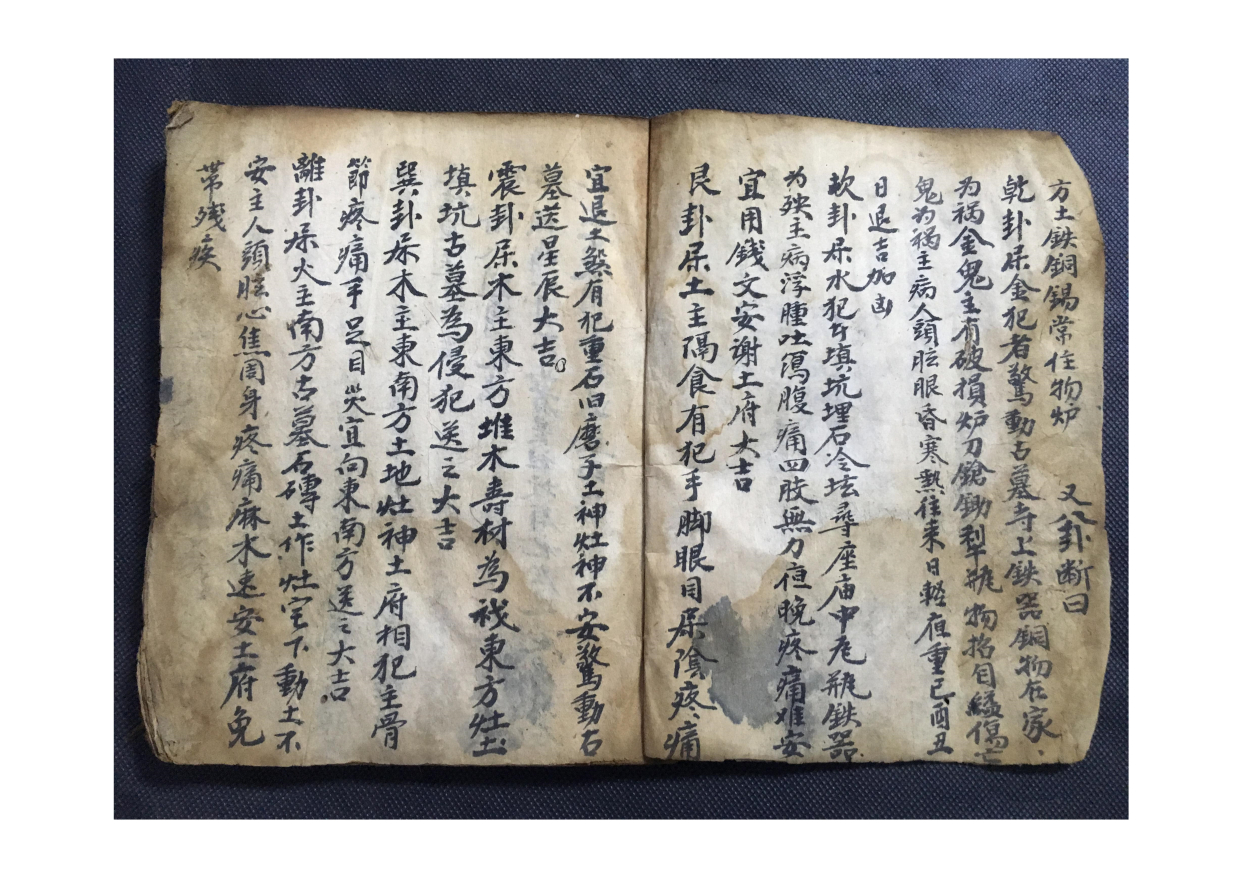 方土鉄銅錫常住物炉
又八卦断曰
乾卦屎金犯者驚動古墓寺上鉄器銅物在家、
为祸金鬼主有破損炉刀鎗鋤犁瓶物招目縊傷亡
鬼为祸主病人頭眩眼昏寒熱往来日軽夜重巳酉丑
日退吉加凶
坎卦屎水犯午填坑埋石令坛尋座庙中尼瓶鉄器
为殃主病浮腫吐瀉腹痛四肢無力夜晚疼痛难安
宜用錢文安謝土府大吉
艮卦屎土主隔食有犯手脚眼目屎陰疼痛
宜退土煞有犯重石旧磨子土神灶神不安驚動古
墓送星辰大吉。
震卦屎木主東方堆木壽材為祸東方灶土
填坑古墓為侵犯送之大吉
巽卦屎木主東南方土地灶神土府相犯主骨
節疼痛手足目災宜向東南方送之大吉。
離卦屎火主南方古墓石磚土作灶宅下動土不
安主人頭眩心焦周身疼痛麻木速安土府免
帯残疾